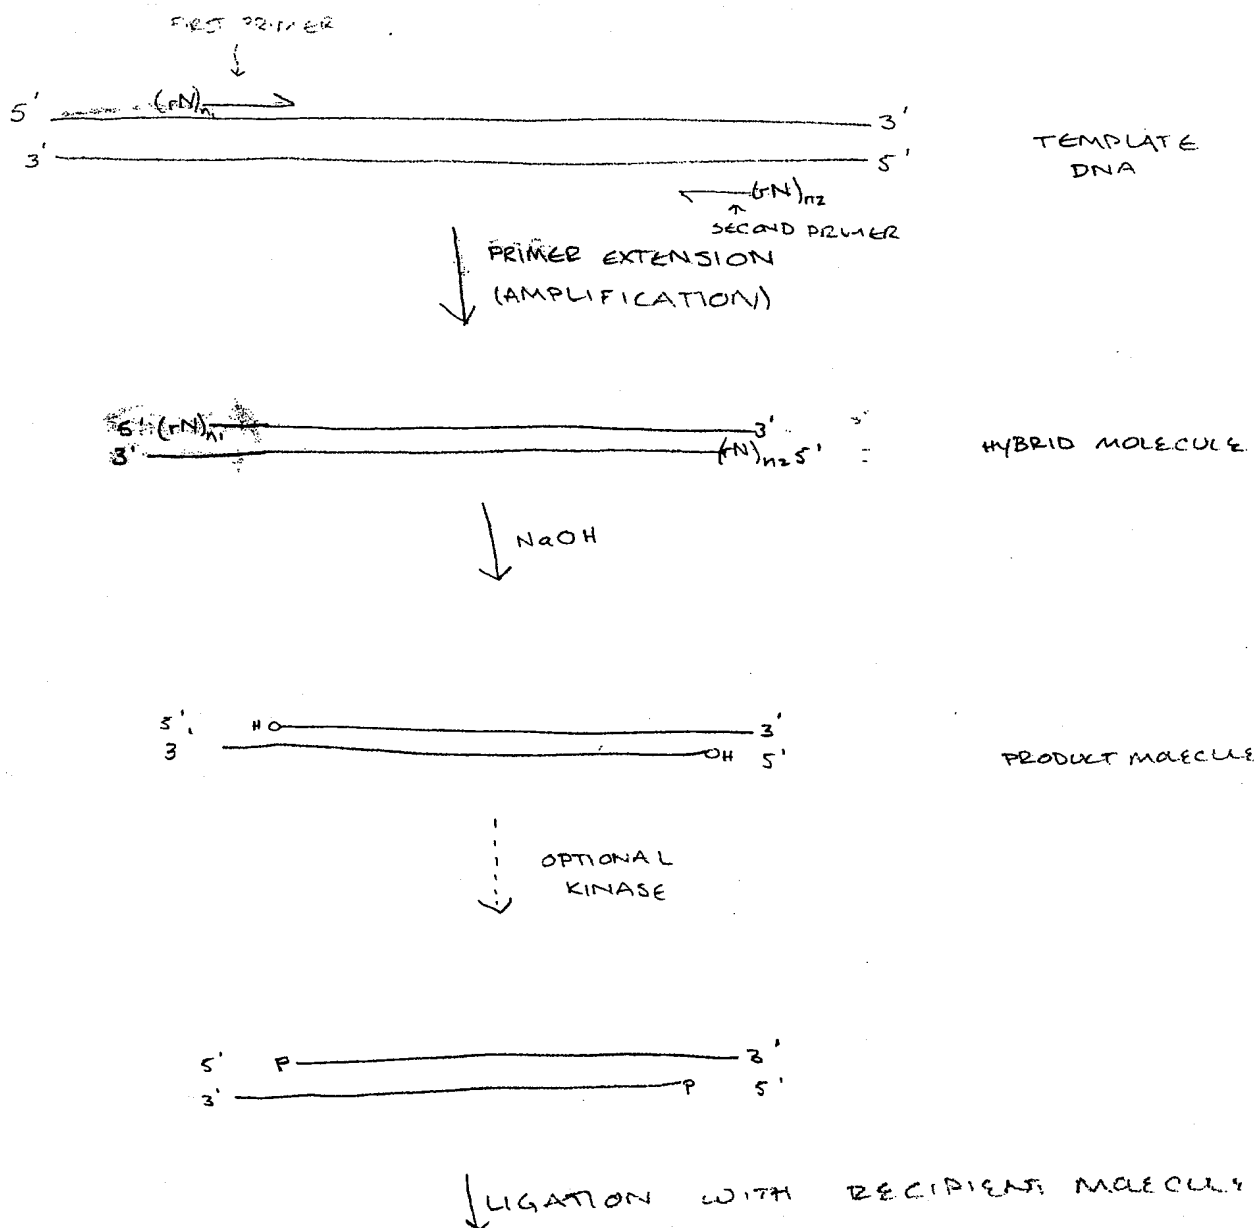 FIRST PRIMER
5' (rN)n1 3'
3' 5'
TEMPLATE
DNA
(rN)n2
SECOND PRIMER
PRIMER EXTENSION
(AMPLIFICATION)
5' (rN)n1 3' 3'
3' (rN)n2 5'
HYBRID MOLECULE
NaOH
5' HO 3'
3 OH 5'
PRODUCT MOLECULE
OPTIONAL
KINASE
5' P 3'
3' P 5'
LIGATION WITH RECIPIENT MOLECULE